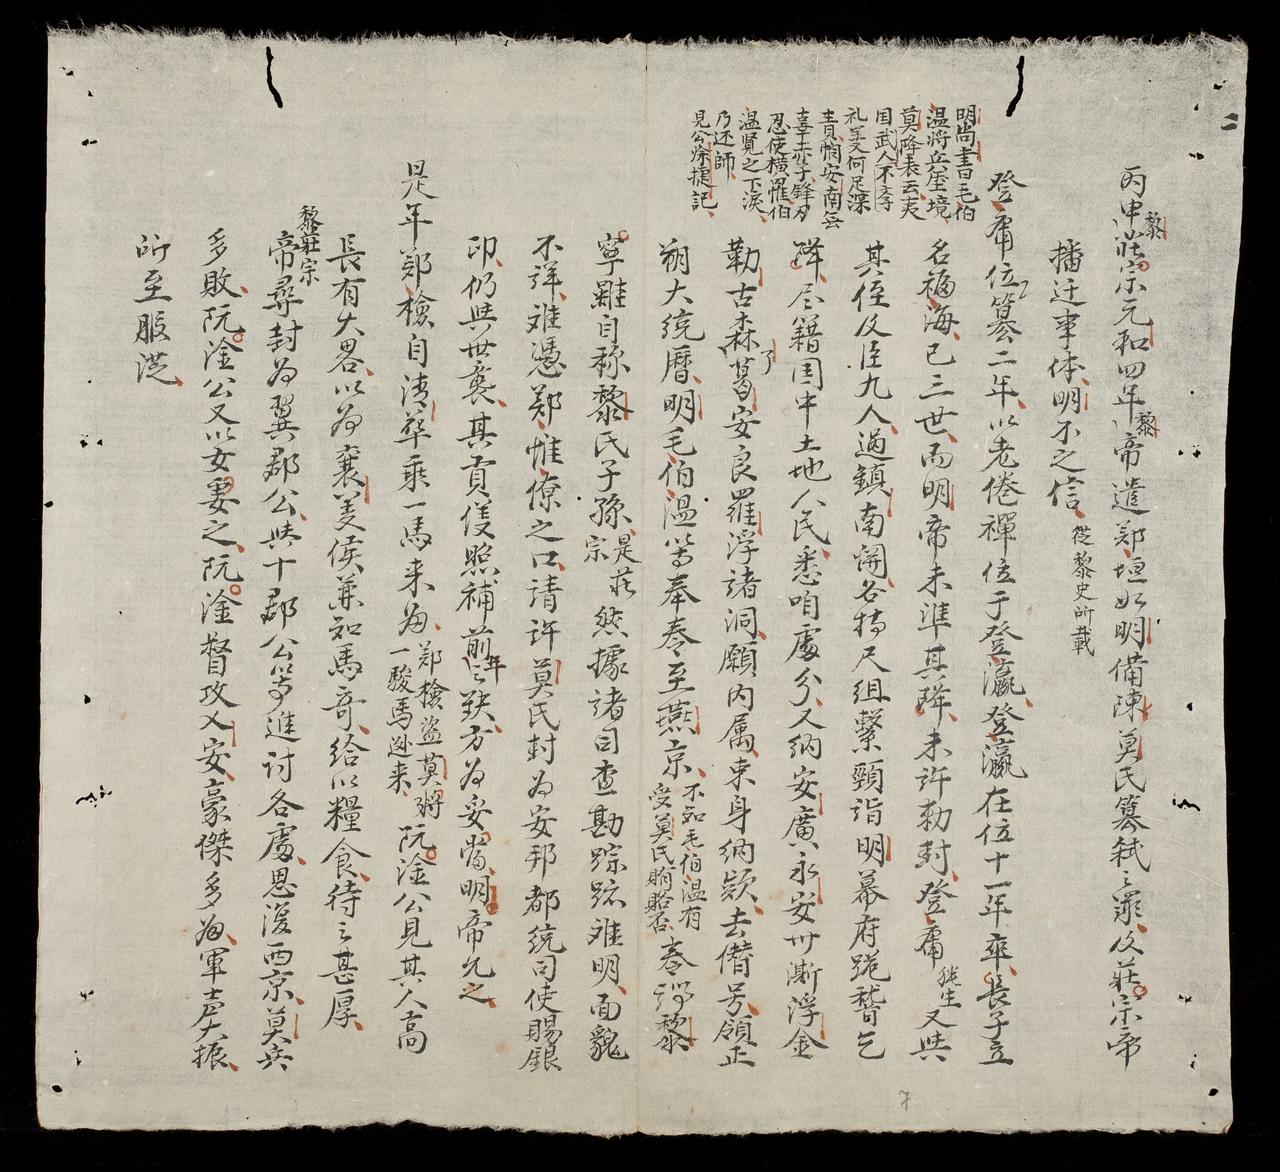 丙申黎莊宗元和四年黎帝遣郑垣如明備陳莫氏篡弑之罪及莊宗帝
播迁事体明不之信從黎史所載
登庸位篡二年以老倦禪位于登瀛登瀛在位十一年卒長子立
名福海已三世而明帝未準其降未許勅封登庸猶生又与
其侄及臣九人過鎮南関各持尺组繫頸詣明幕府跪稽乞
降尽籍国中土地人民悉咱處分又纳安廣永安州澌浮金
勒古森了葛安良羅浮诸洞願内属束身纳欵去僭号領正
朔大统暦明毛伯温等奉奏至燕京不知毛伯温有受莫氏賄賂否奏謂黎
寧雖自称黎氏子孫是莊宗然據诸司查勘踪跡难明面貌
不詳难憑郑惟僚之口请许莫氏封为安邦都统司使賜銀
印仍与世襲其貢俴照補前年之欵方为妥當明帝允之
是年郑檢自清華乘一馬来为郑檢盗莫将一駿馬逃来阮淦公見其人高
長有大畧以为襄義侯兼知馬哥给以糧食待之甚厚
黎莊宗帝尋封为翼郡公与十郡公等進討各處恩復西京莫兵
多敗阮淦公又以女妻之阮淦督攻乂安豪傑多为軍声大振
所至服從
明尚書毛伯
温将兵壓境
莫降表云夷
国武人不文字
礼義何足深
責惘安南無
辜赤子鋒刃
忍使横罹伯
温覽之下淚
乃还師
見公餘捷記